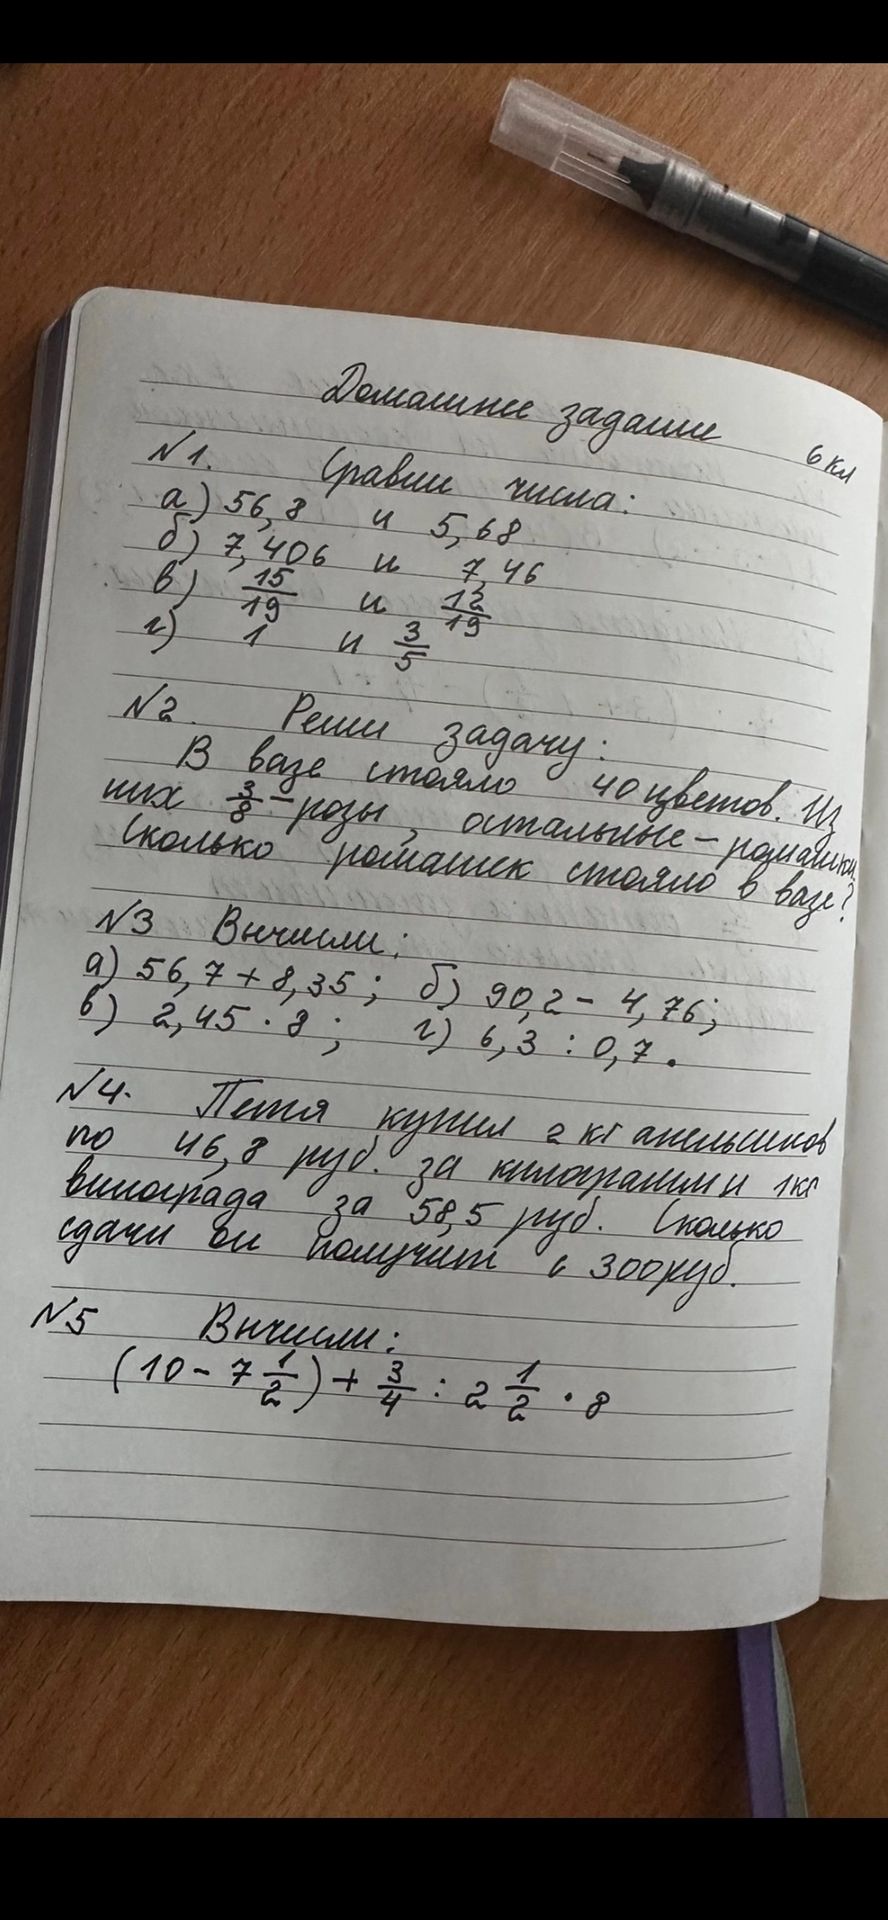 Домашнее задание
6 кл
N1. Сравни числа:
а) 56,8 и 5,68
б) 7,406 и 7,46
в) 15/19 и 12/19
г) 1 и 3/5
N2. Реши задачу:
В вазе стояло 40 цветов. Из
них 3/8 – розы, остальные – ромашки.
Сколько ромашек стояло в вазе?
N3 Вычисли:
а) 56,7 + 8,35; б) 90,2 – 4,76;
в) 2,45 · 8; г) 6,3 : 0,7.
N4. Петя купил 2 кг апельсинов
по 46,8 руб. за килограмм и 1 кг
винограда за 58,5 руб. Сколько
сдачи он получит с 300 руб.
N5 Вычисли:
(10 – 7 1/2) + 3/4 : 2 1/2 · 8